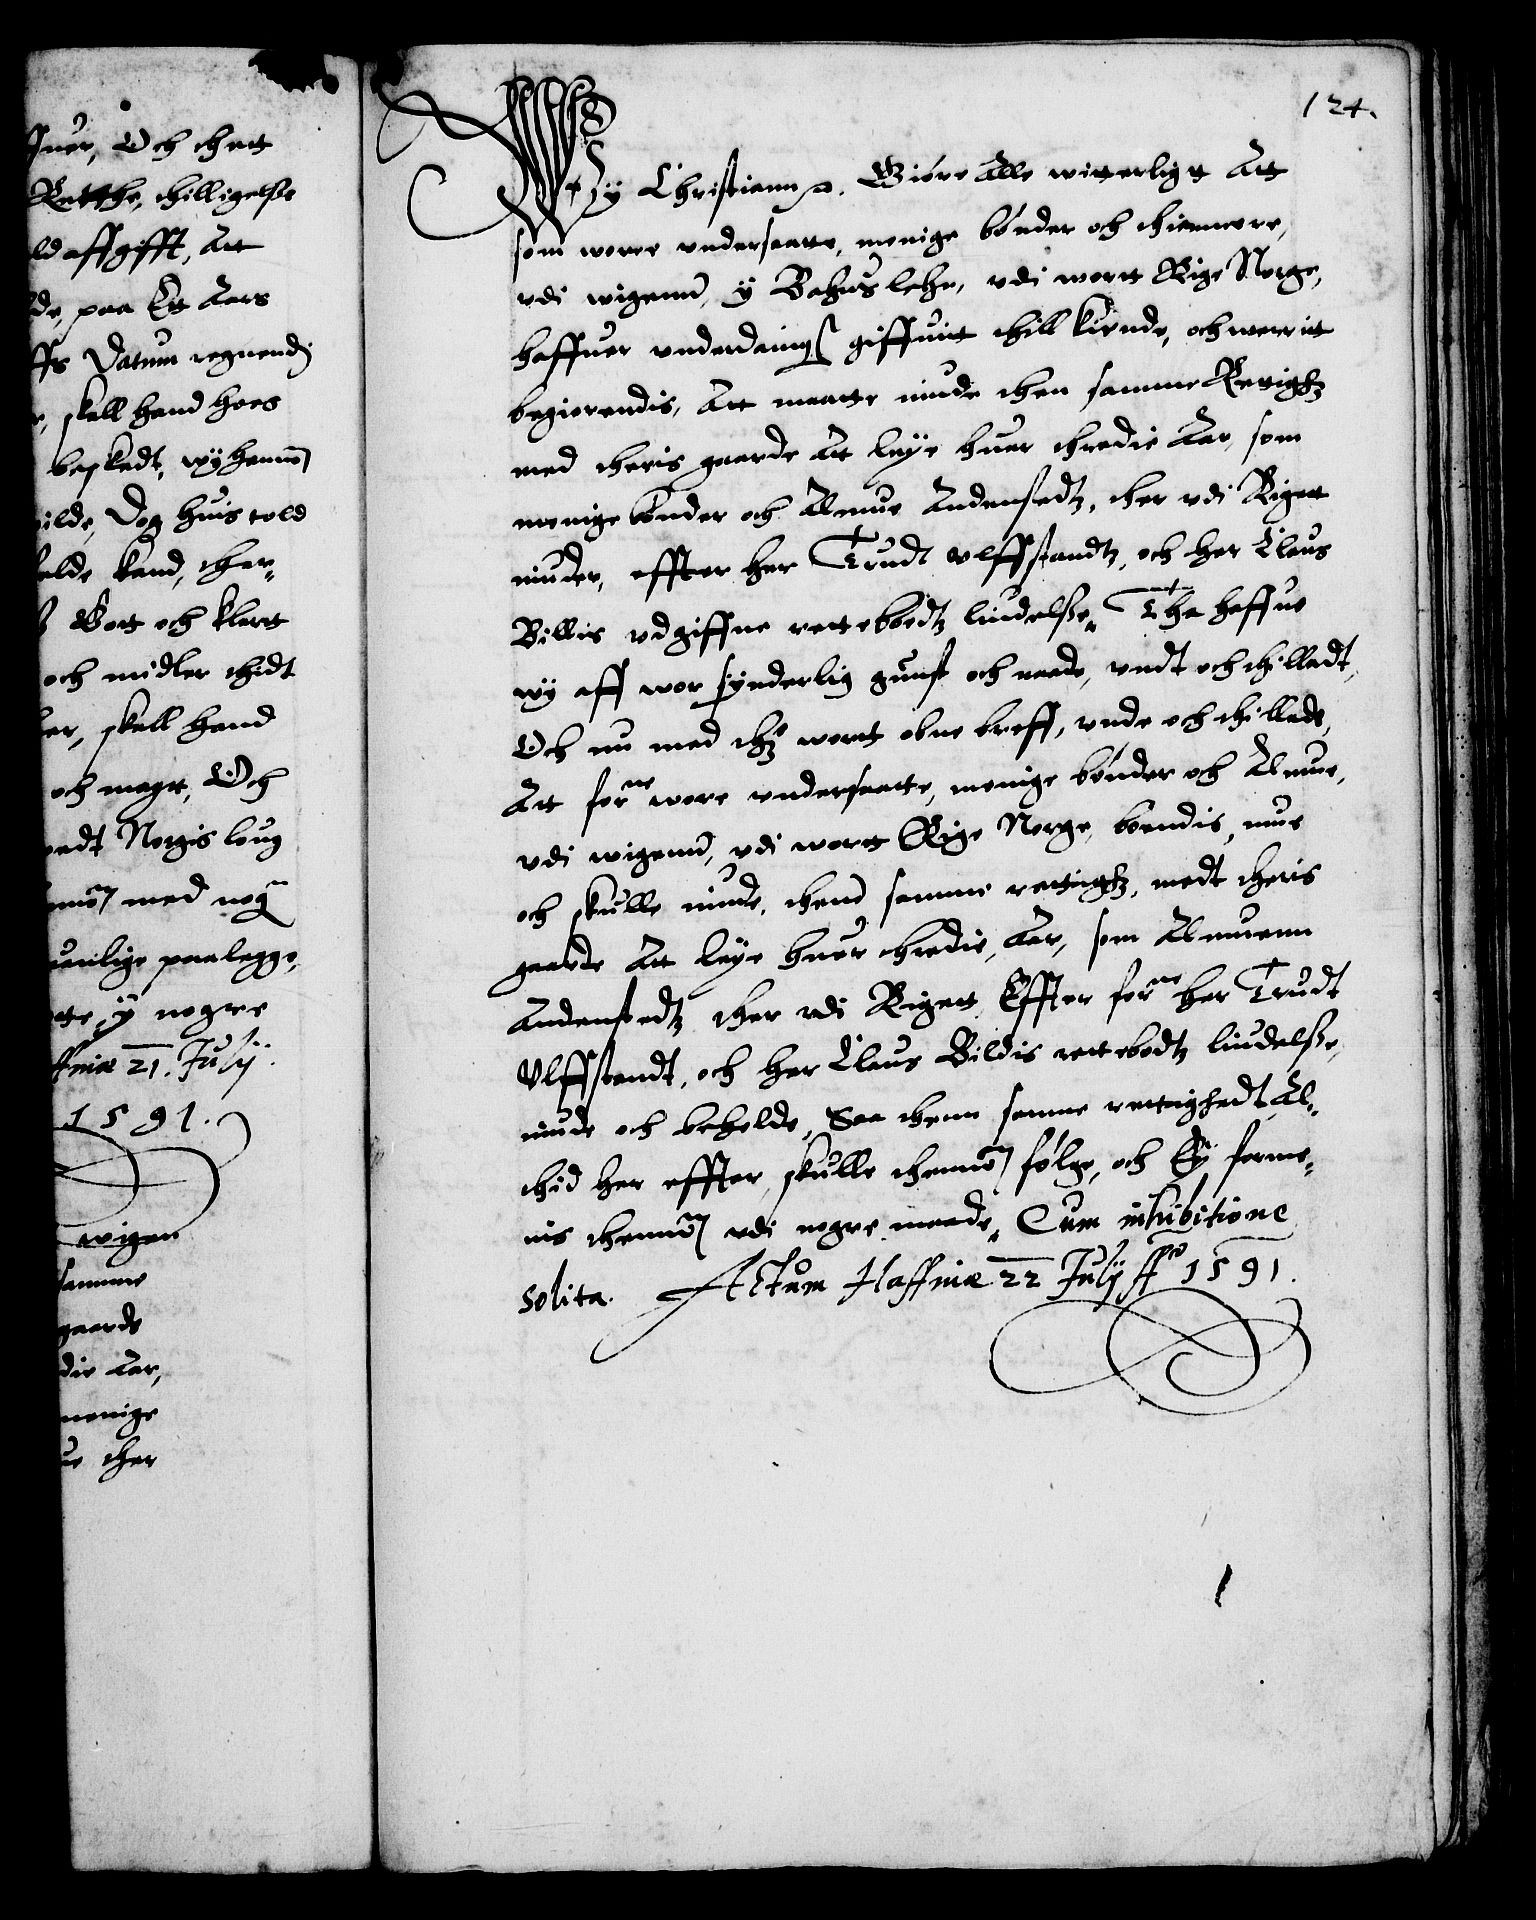 ffuer, Och thett
Retthe, thilligelsze
ld affgifft, Att
lde, paa Ett Aars
ffs Datum regnendj
r, skall hand hoes
beskedt, wij hannom
ilde, Dog huis told
helde kand, ther„
Gott och klart
och midler thidt
ller, skall hand
och magt, Och
uedt Norgis loug
med nog
uurlige paalegge,
tte ij nogre
ffniæ 21. Julij.
1591.
wigen
samme
gaarde
die Aar,
menige
ue ther
124.
Wij Christiann etc. Giøre Alle witterligtt Att
som worre undersaatte, menige bønder och thiennere,
udi wigenn, ij Bahus lehn, udi wortt Rige Norge,
haffuer underdaing giffuitt thill kiende, och werritt
begierendis, Att maatte niude then samme Rettighz
med theris gaarde Att leye huer thredie Aar, som
menige bønder och Almue Andenstedz, ther udi Rigett
niuder, effter her Trudt Ulffstandtz, och her Claus
Billis udgiffne rettebodtz liudelsze„ Tha haffue
wij aff wor synderlig gunst och naade, undt och thilladt,
Och nu med thz wortt obne breff, unde och thillade,
Att forne wore undersaatte, menige bønder och Almue,
udi wigenn, udi wortt Rige Norge, boendis, mue
och skulle niude, thend samme rettighz, medt theris
gaarde Att leye huer thredie, Aar, som Almuenn
Andenstedz ther udi Rigett Effter forne her Trudt
Ulffstandt, och her Claus Bildis rettebodtz liudelsze,
niude och beholde, Saa thenn samme rettighedt Al„
thid her effter, skulle thennom følge, och Ey forme„
nis thennom udi nogre maade„ Cum inhibitione
solita. Actum Haffniæ 22 Julij 1591.